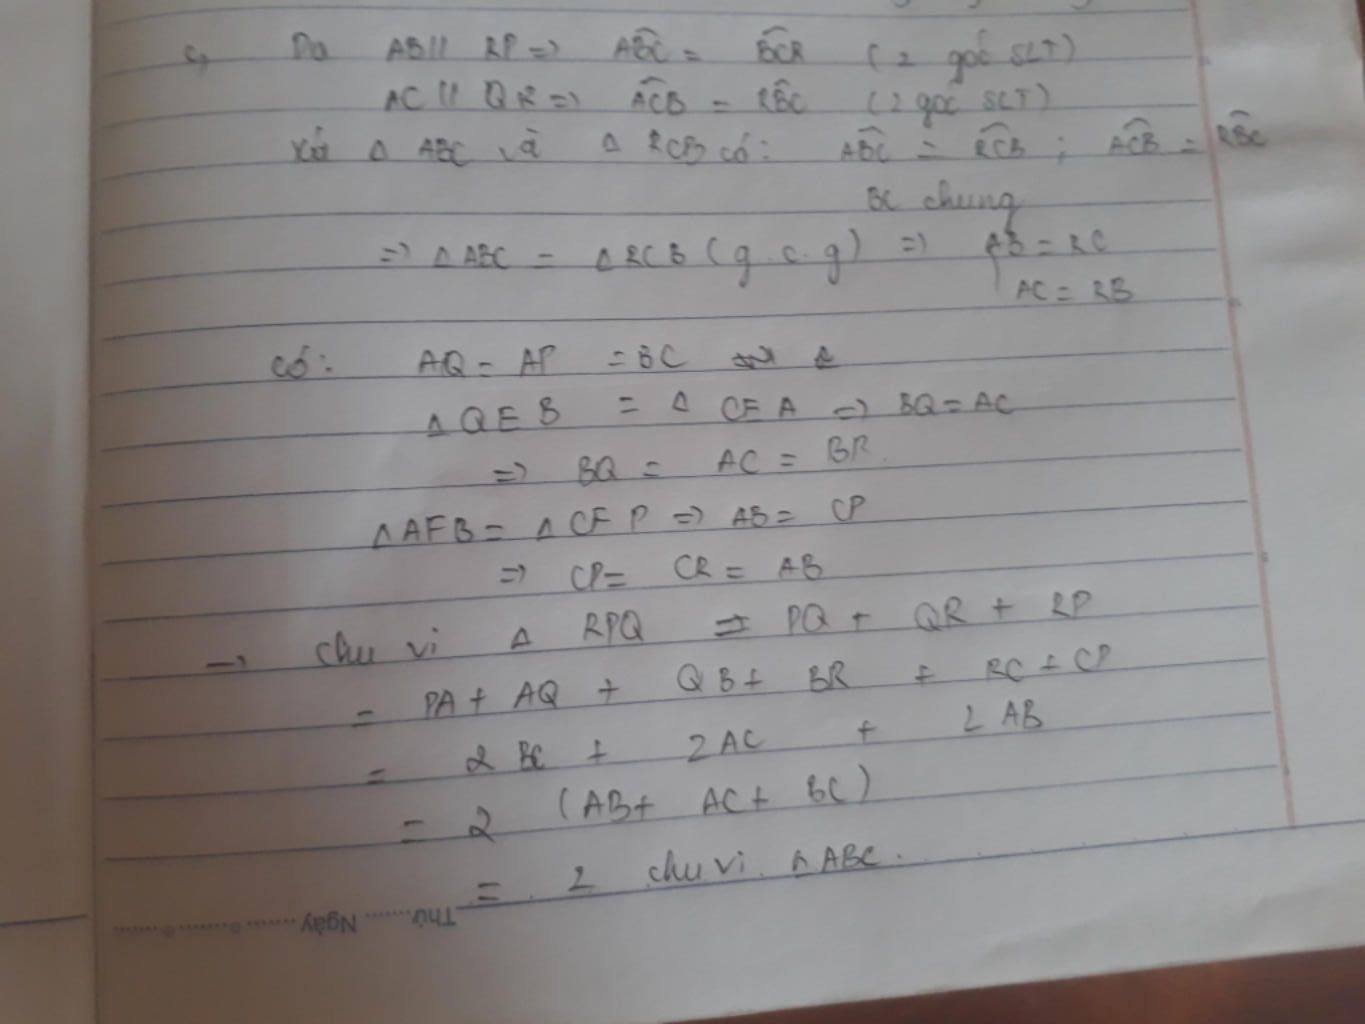 c, Do AB // RP => ABC = BCR (2 góc SLT)
AC // QR => ACB = RBC (2 góc SLT)
Xét Δ ABC và Δ RCB có: ABC = RCB ; ACB = RBC
BC chung
=> Δ ABC = Δ RCB (g.c.g) => AB = RC
AC = RB
có: AQ = AP = BC
Δ QEB = Δ CEA => BQ = AC
=> BQ = AC = BR.
Δ AFB = Δ CFP => AB = CP
=> CP = CR = AB
→ Chu vi Δ RPQ = PQ + QR + RP
= PA + AQ + QB + BR + RC + CP
= 2 BC + 2 AC + 2 AB
= 2 (AB + AC + BC)
= 2 chu vi Δ ABC.
Thứ ........ Ngày ........